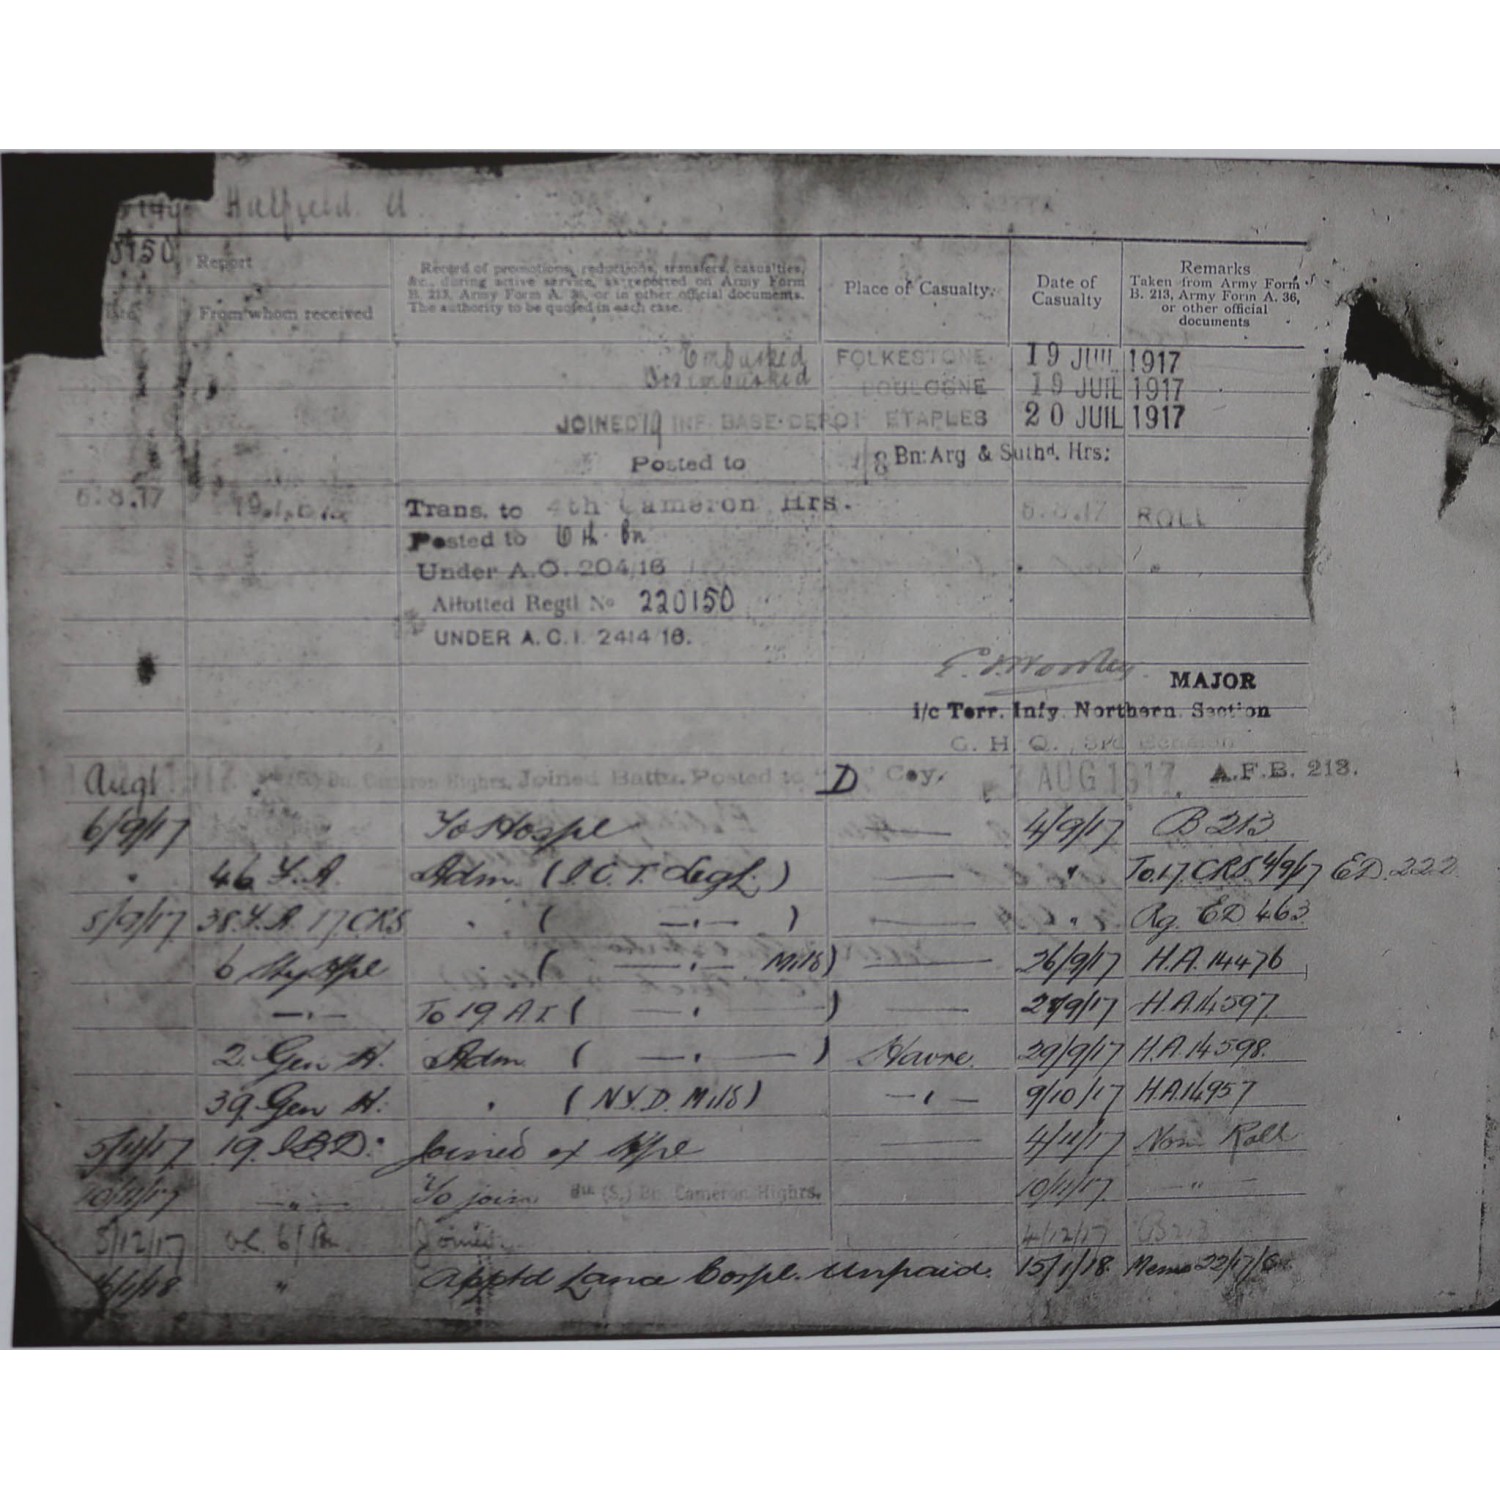 Hatfield. A
5150 Report
From whom received
Record of promotions, reductions, transfers, casualties,
&c., during active service, as reported on Army Form
B. 213, Army Form A. 36, or in other official documents.
The authority to be quoted in each case.
Place of Casualty.
Date of
Casualty
Remarks
Taken from Army Form
B. 213, Army Form A. 36,
or other official
documents
Embarked FOLKESTONE 19 JUIL 1917
Disembarked BOULOGNE 19 JUIL 1917
JOINED 19 INF BASE DEPOT ETAPLES 20 JUIL 1917
Posted to 1/8 Bn: Arg & Suthd. Hrs:
6.8.17 Trans. to 4th Cameron Hrs. 6.8.17 ROLL
Posted to 6th. Bn
Under A.O. 204/16
Allotted Regtl No 220150
UNDER A.C.I. 2414/16.
MAJOR
i/c Terr. Infy Northern Section
G. H. Q., 3rd Echelon
Aug 1917 Bn. Cameron Highrs. Joined Battn. Posted to "D" Coy. AUG 1917. A.F.B. 213.
6/9/17 To Hospl — 4/9/17 B 213
" 46 F.A. Adm. (I.C.T. Legs.) — " To 17 CRS 4/9/17 ED. 222
5/9/17 38 F.A. 17 CRS " ( —"— ) — " Rg. ED 463
6 Sty Hspl " ( —"— Mild) — 26/9/17 H.A. 14476
—"— To 19 A.T. ( —"— ) — 28/9/17 H.A. 14597
2. Gen H. Adm ( —"— ) Havre. 29/9/17 H.A. 14598.
39 Gen H. " (N.Y.D. Mild) —"— 9/10/17 H.A. 14957
5/11/17 19. I.B.D. Joined ex Hspl — 4/11/17 Nom Roll
10/11/17 —"— To join 6th (S.) Bn. Cameron Highrs. 10/11/17 —"—
5/12/17 O.C. 6/Bn Joined. 4/12/17 B213
" Apptd Lance Corpl. Unpaid. 15/1/18. Memo